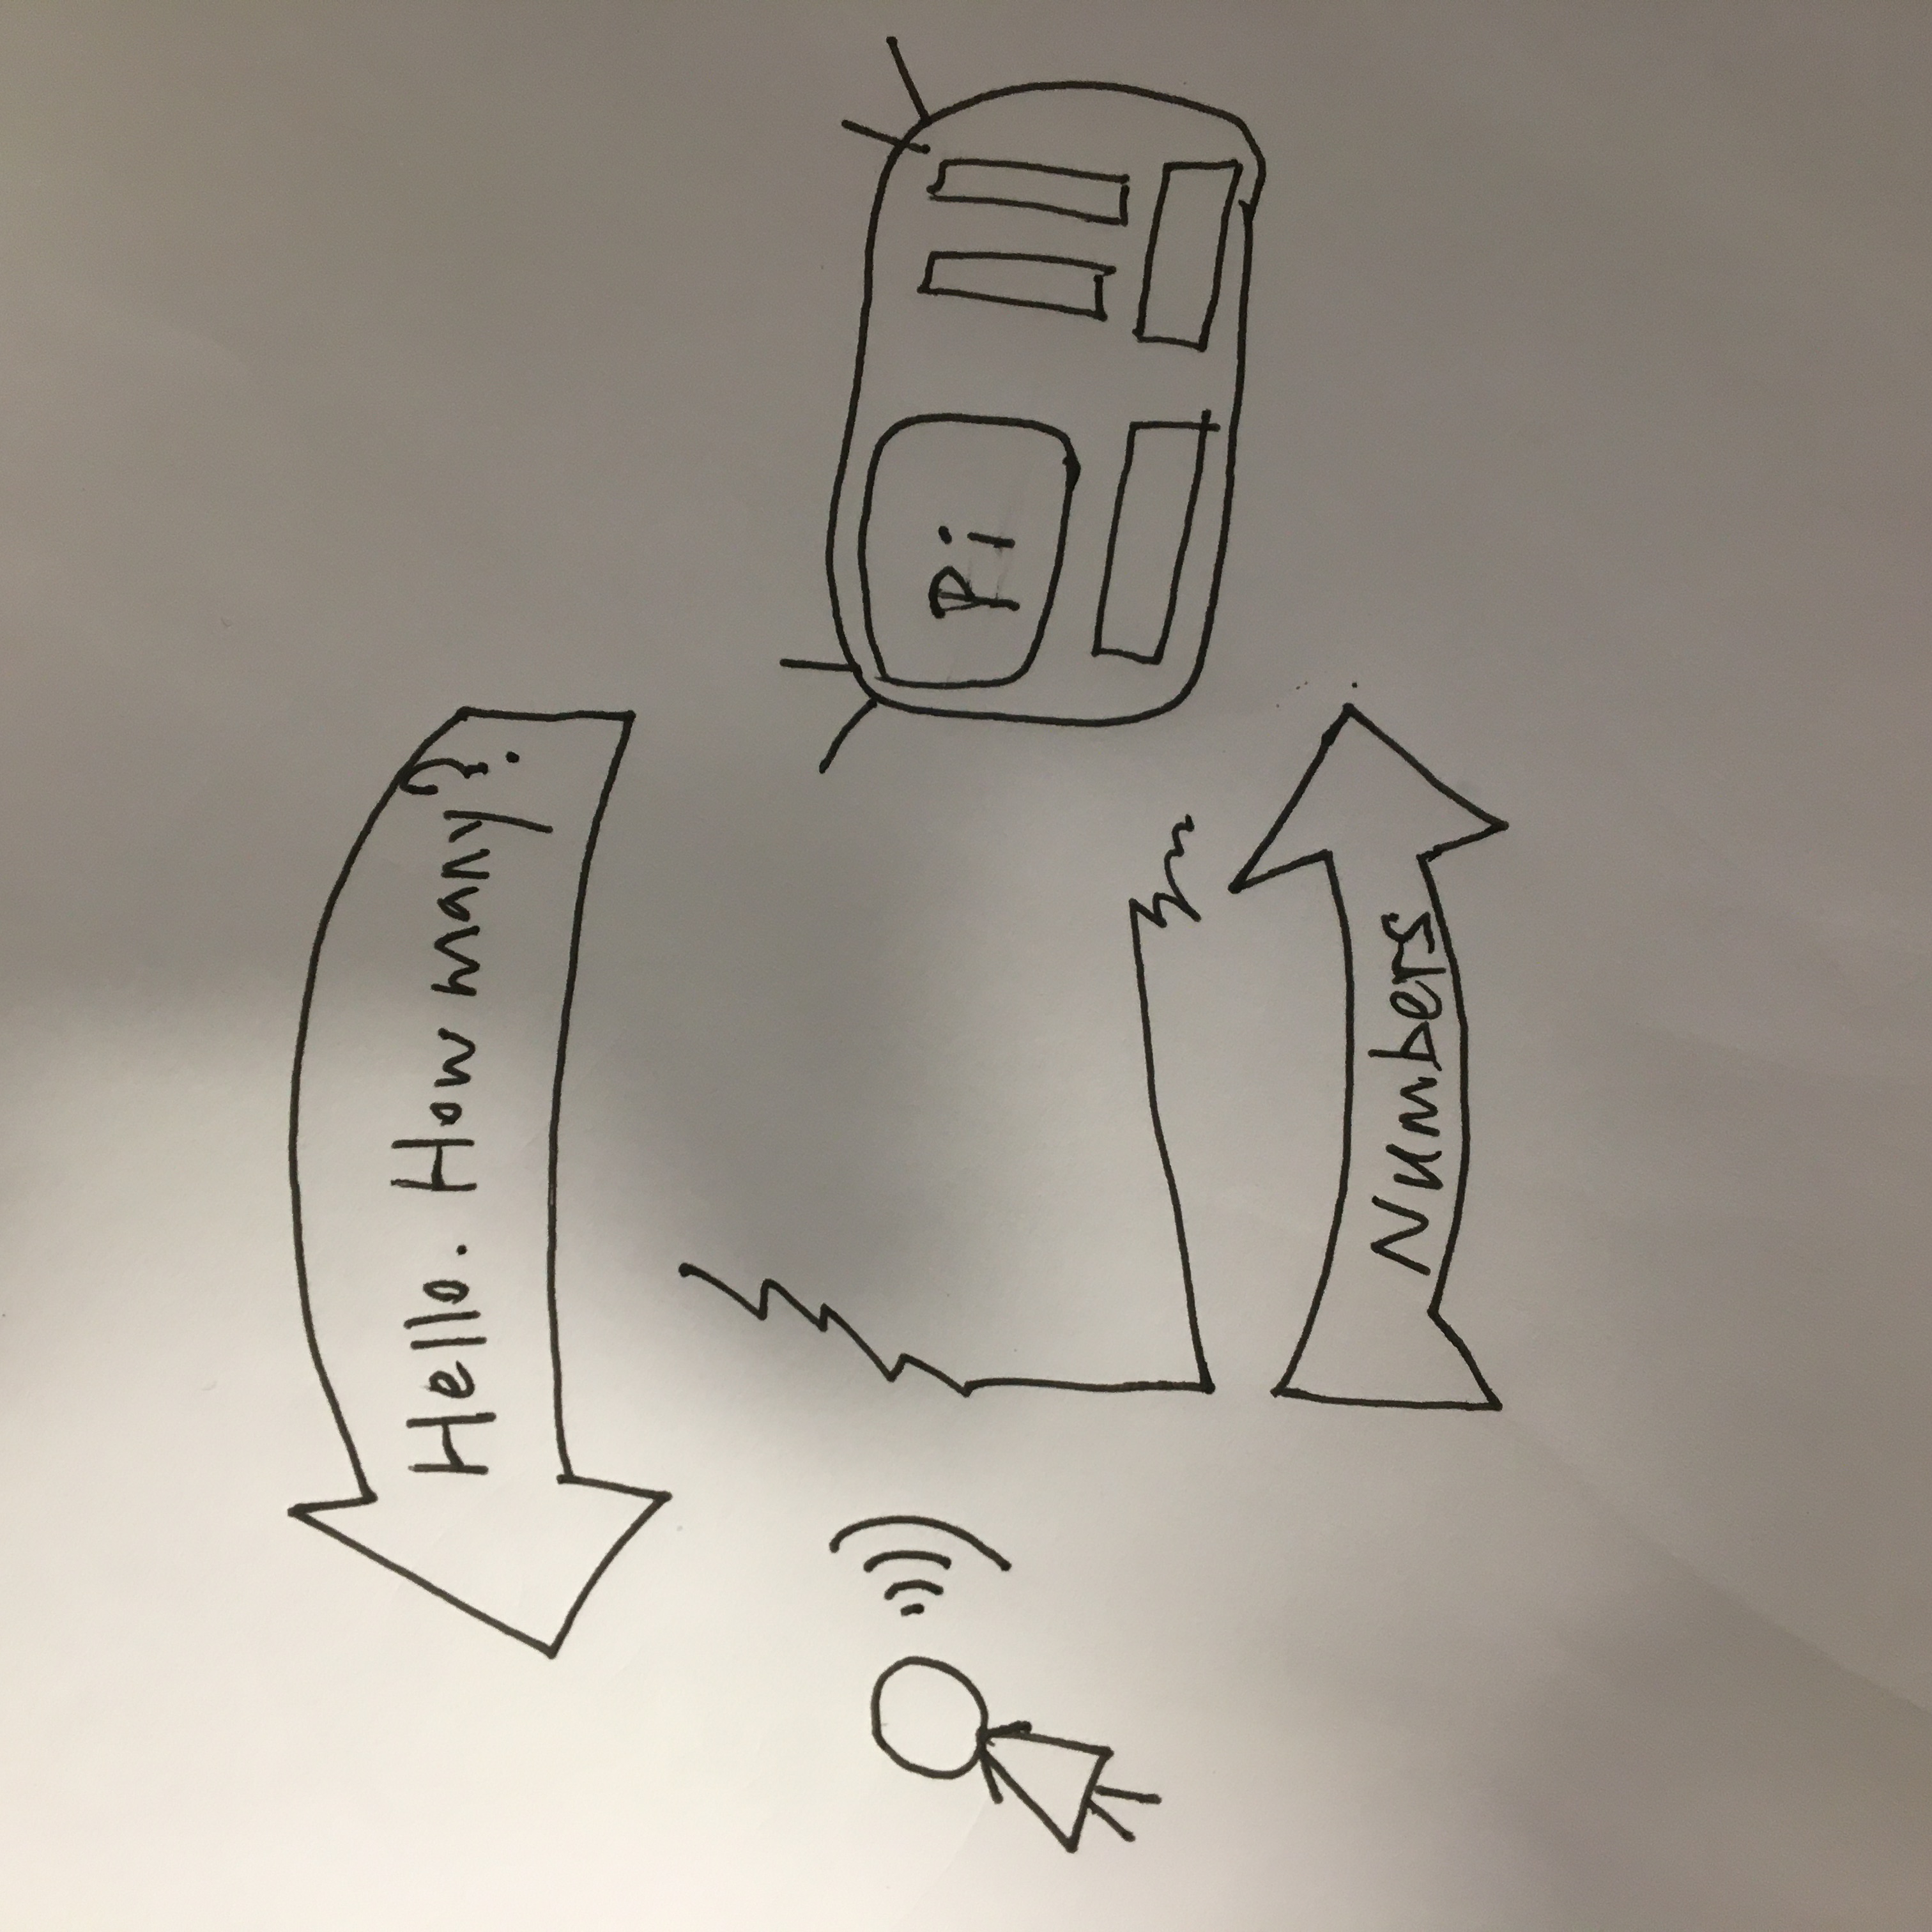 Hello. How many?
Pi
Numbers